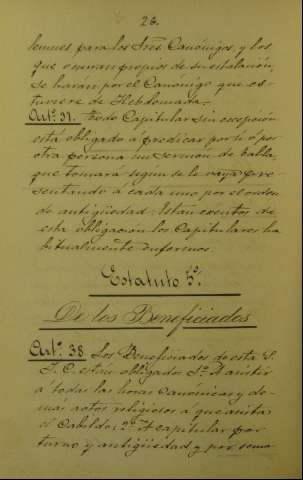 26.
lemnes para los Tres Canónigos, y los
que ocurran propios de su estalación,
se harán por el Canónigo que es-
tuviere de Hebdomada.
Artº. 37. Todo Capitular sin excepción
está obligado á predicar por sí ó por
otra persona un sermon de tabla,
que tomará segun se le vaya pre-
sentando á cada uno por el orden
de antigüedad. Estan exentos de
esta obligacion los Capitulares ha
bitualmente enfermos.
Estatuto 5º.
De los Beneficiados
Artº. 38. Los Beneficiados de esta S.
I. C. están obligados 1º. A asistir
á todas las horas canónicas y de-
más actos religiosos a que asista
el Cabildo: 2º. A capitular por
turno y antigüedad y por sema